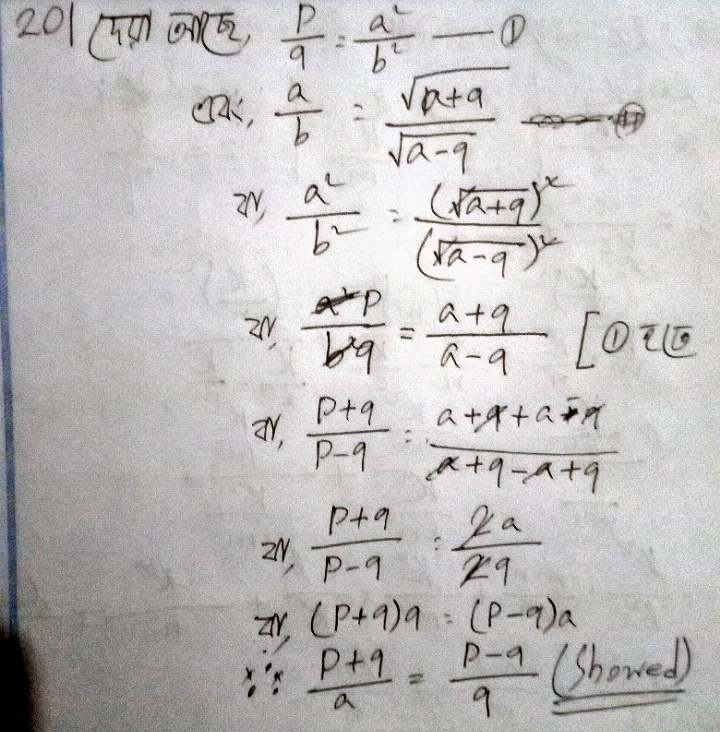 20। দেয়া আছে, p/q = a²/b² — ①
এবং, a/b = √(a+q)/√(a-q)
বা, a²/b² = (√(a+q))²/(√(a-q))²
বা, p/q = a+q/a-q [① হতে
বা, p+q/p-q = a+q+a-q/a+q-a+q
বা, p+q/p-q = 2a/2q
বা, (p+q)q = (p-q)a
∴ p+q/a = p-q/q (Showed)